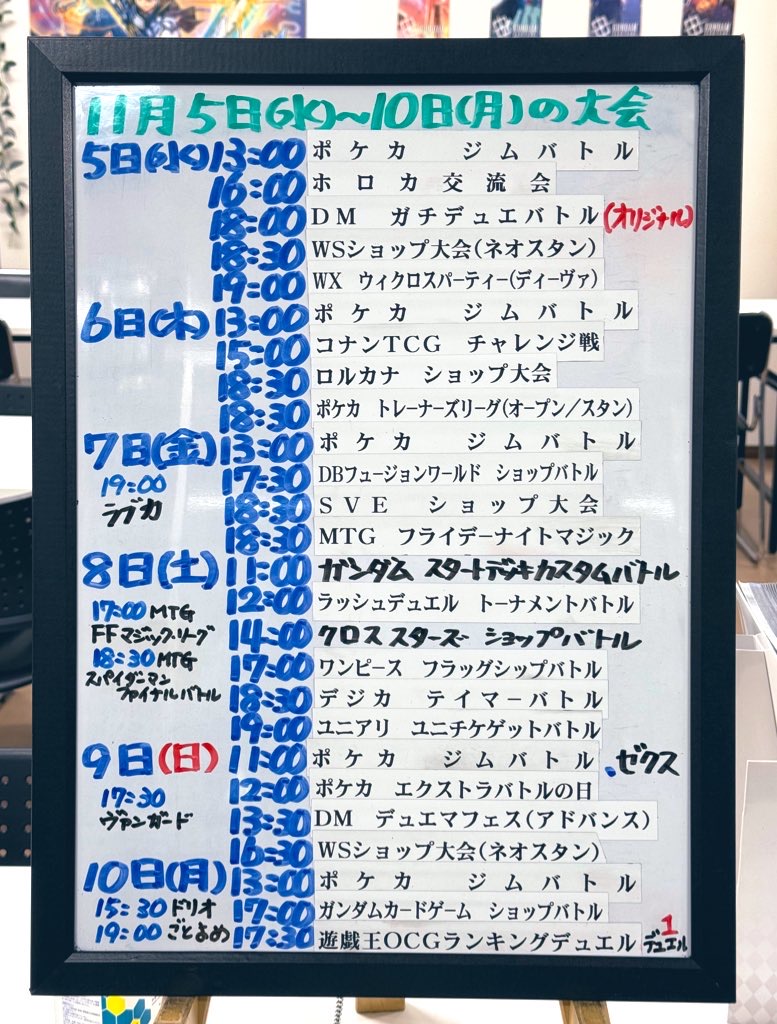 11月5日(水)~10日(月)の大会
5日(水) 13:00 ポケカ ジムバトル
16:00 ホロカ交流会
18:00 DM ガチデュエバトル (オリジナル)
18:30 WSショップ大会(ネオスタン)
19:00 WX ウィクロスパーティー(ディーヴァ)
6日(木) 13:00 ポケカ ジムバトル
15:00 コナンTCG チャレンジ戦
18:30 ロルカナ ショップ大会
18:30 ポケカ トレーナーズリーグ(オープン/スタン)
7日(金) 13:00 ポケカ ジムバトル
19:00
ラブカ
17:30 DBフュージョンワールド ショップバトル
18:30 SVE ショップ大会
18:30 MTG フライデーナイトマジック
8日(土) 11:00 ガンダム スタートデッキカスタムバトル
17:00 MTG
FFマジック・リーグ
18:30 MTG
スパイダーマン
ファイナルバトル
12:00 ラッシュデュエル トーナメントバトル
14:00 クロススターズ ショップバトル
17:00 ワンピース フラッグシップバトル
18:30 デジカ テイマーバトル
19:00 ユニアリ ユニチケゲットバトル
9日(日) 11:00 ポケカ ジムバトル ・ゼクス
17:30
ヴァンガード
12:00 ポケカ エクストラバトルの日
13:30 DM デュエマフェス(アドバンス)
16:30 WSショップ大会(ネオスタン)
10日(月) 13:00 ポケカ ジムバトル
15:30 ドリオ
19:00 ごとよめ
17:00 ガンダムカードゲーム ショップバトル
17:30 遊戯王OCGランキングデュエル 1
デュエル